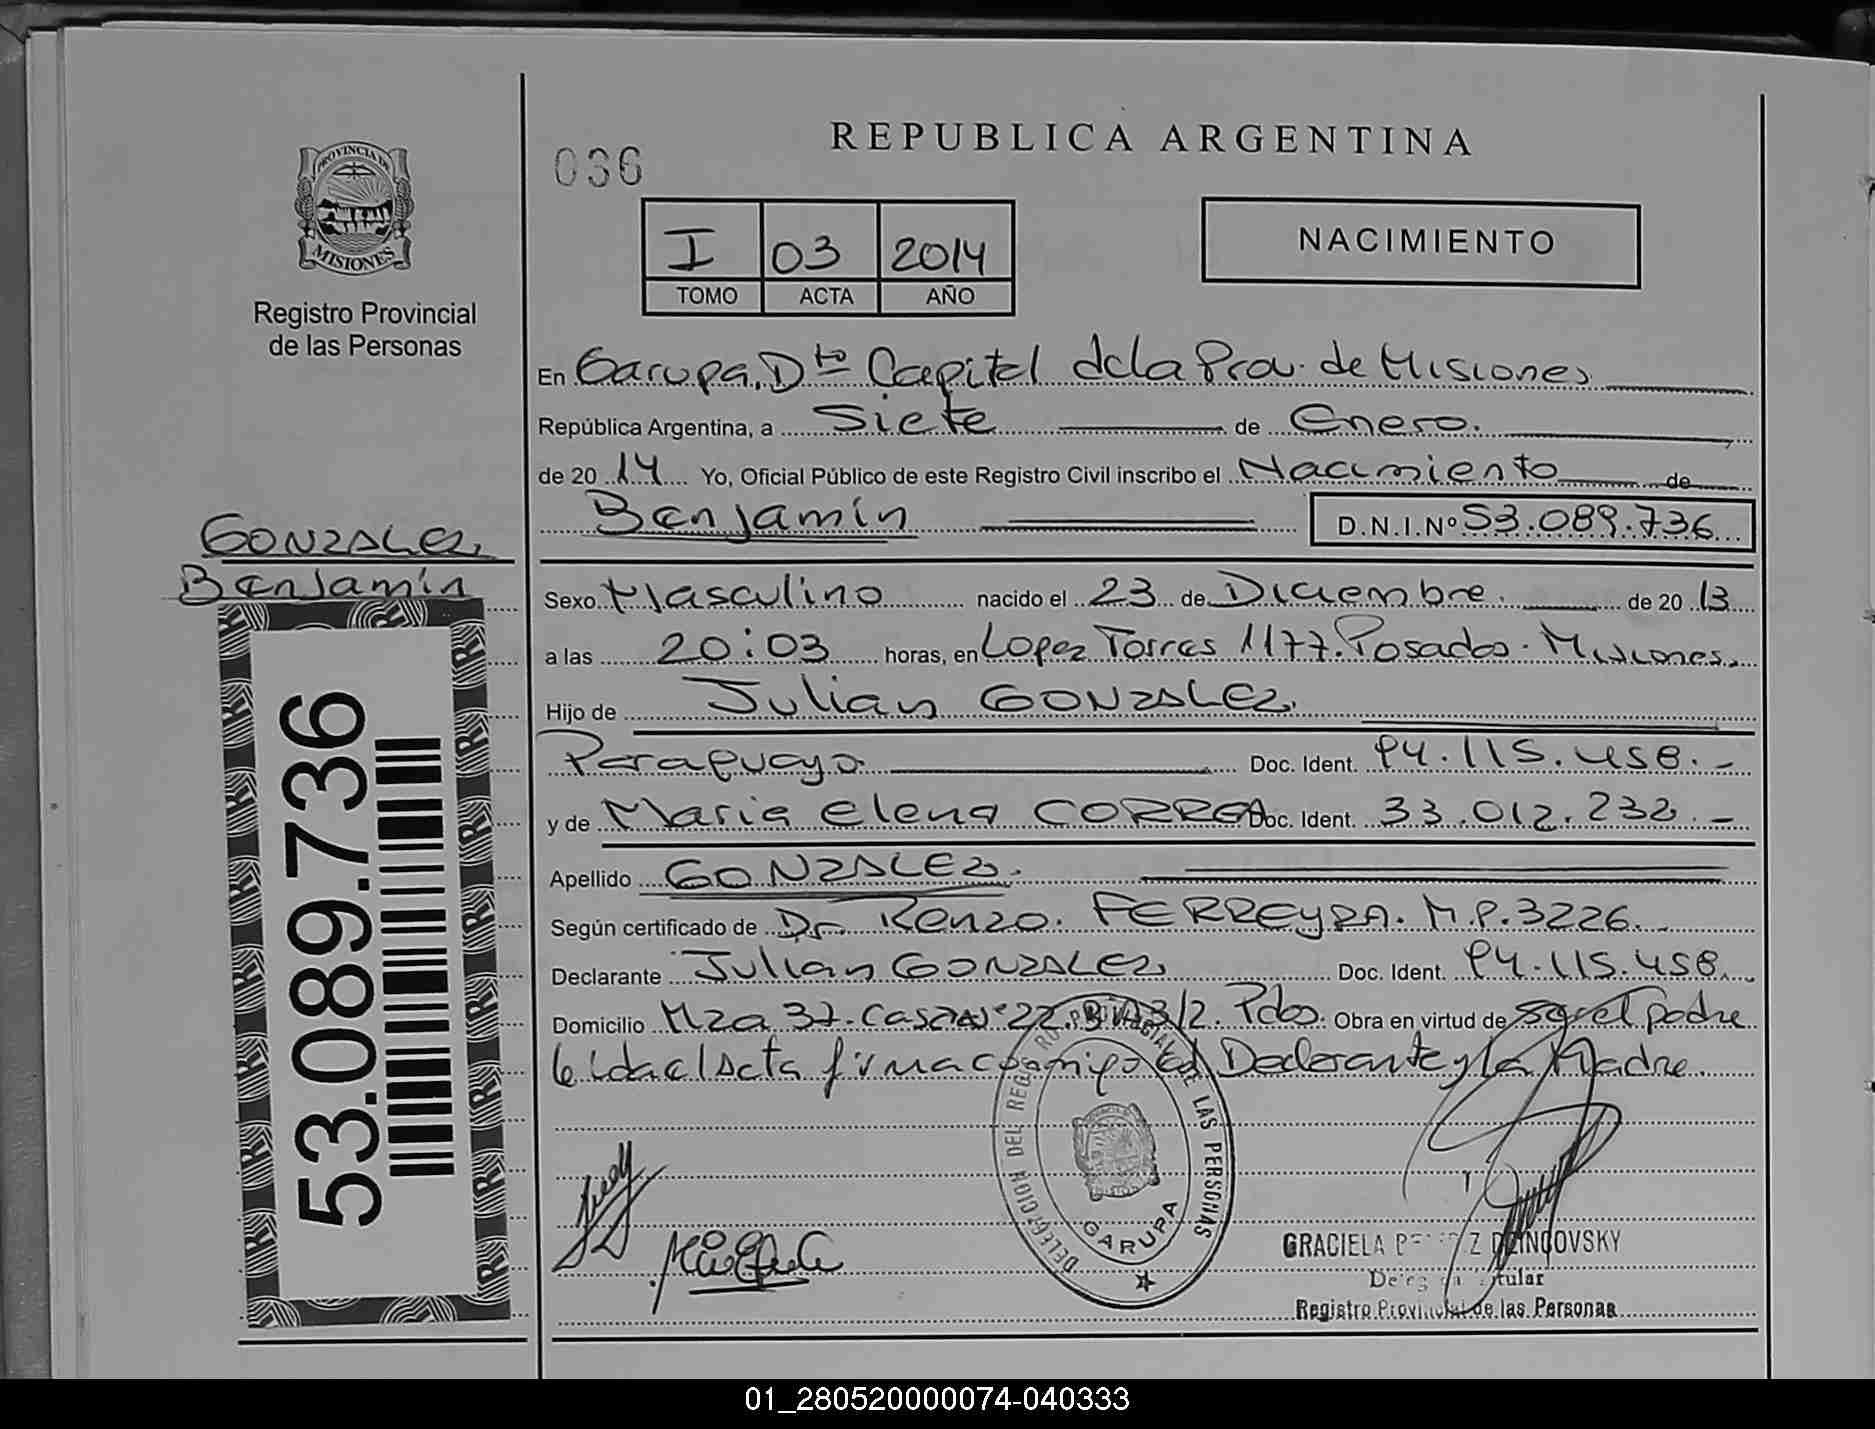 036
REPUBLICA ARGENTINA
PROVINCIA DE
MISIONES
Registro Provincial
de las Personas
I 03 2014
TOMO ACTA AÑO
NACIMIENTO
En Garupa, Dto Capital de la Prov. de Misiones
República Argentina, a Siete de Enero.
de 20 14 Yo, Oficial Público de este Registro Civil inscribo el Nacimiento de
Benjamín D.N.I.Nº 53.089.736
GONZALEZ
Benjamín
Sexo Masculino nacido el 23 de Diciembre. de 20 13
a las 20:03 horas, en Lopez Torres 1177. Posadas. Misiones.
Hijo de Julian GONZALEZ.
Paraguayo Doc. Ident. P4.115.458.-
y de Maria Elena CORREA Doc. Ident. 33.012.232.-
Apellido GONZALEZ.
Según certificado de Dr. Renzo. FERREYRA. M.P.3226.
Declarante Julian GONZALEZ Doc. Ident. P4.115.458.
Domicilio Mza 37. Casa Nº 22. 3/2. Pdas. Obra en virtud de ser el padre
Leida el Acta firma conmigo el Declarante y la Madre.
53.089.736
DELEGACION DEL REG. PROVINCIAL DE LAS PERSONAS
GARUPA
GRACIELA DZINCOVSKY
Titular
Registro Provincial de las Personas
01_280520000074-040333